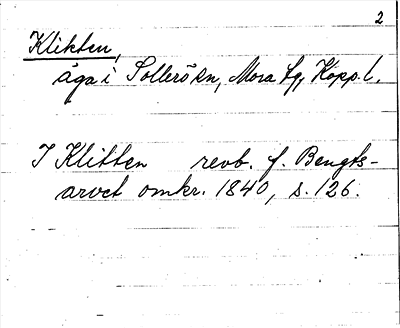 2
Klikten,
äga i Sollerökn, Mora tg, Kopp. l.
I Klitten revb. f. Bengts-
arvet omkr. 1840, s. 126.